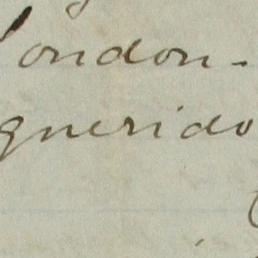 London-
querido